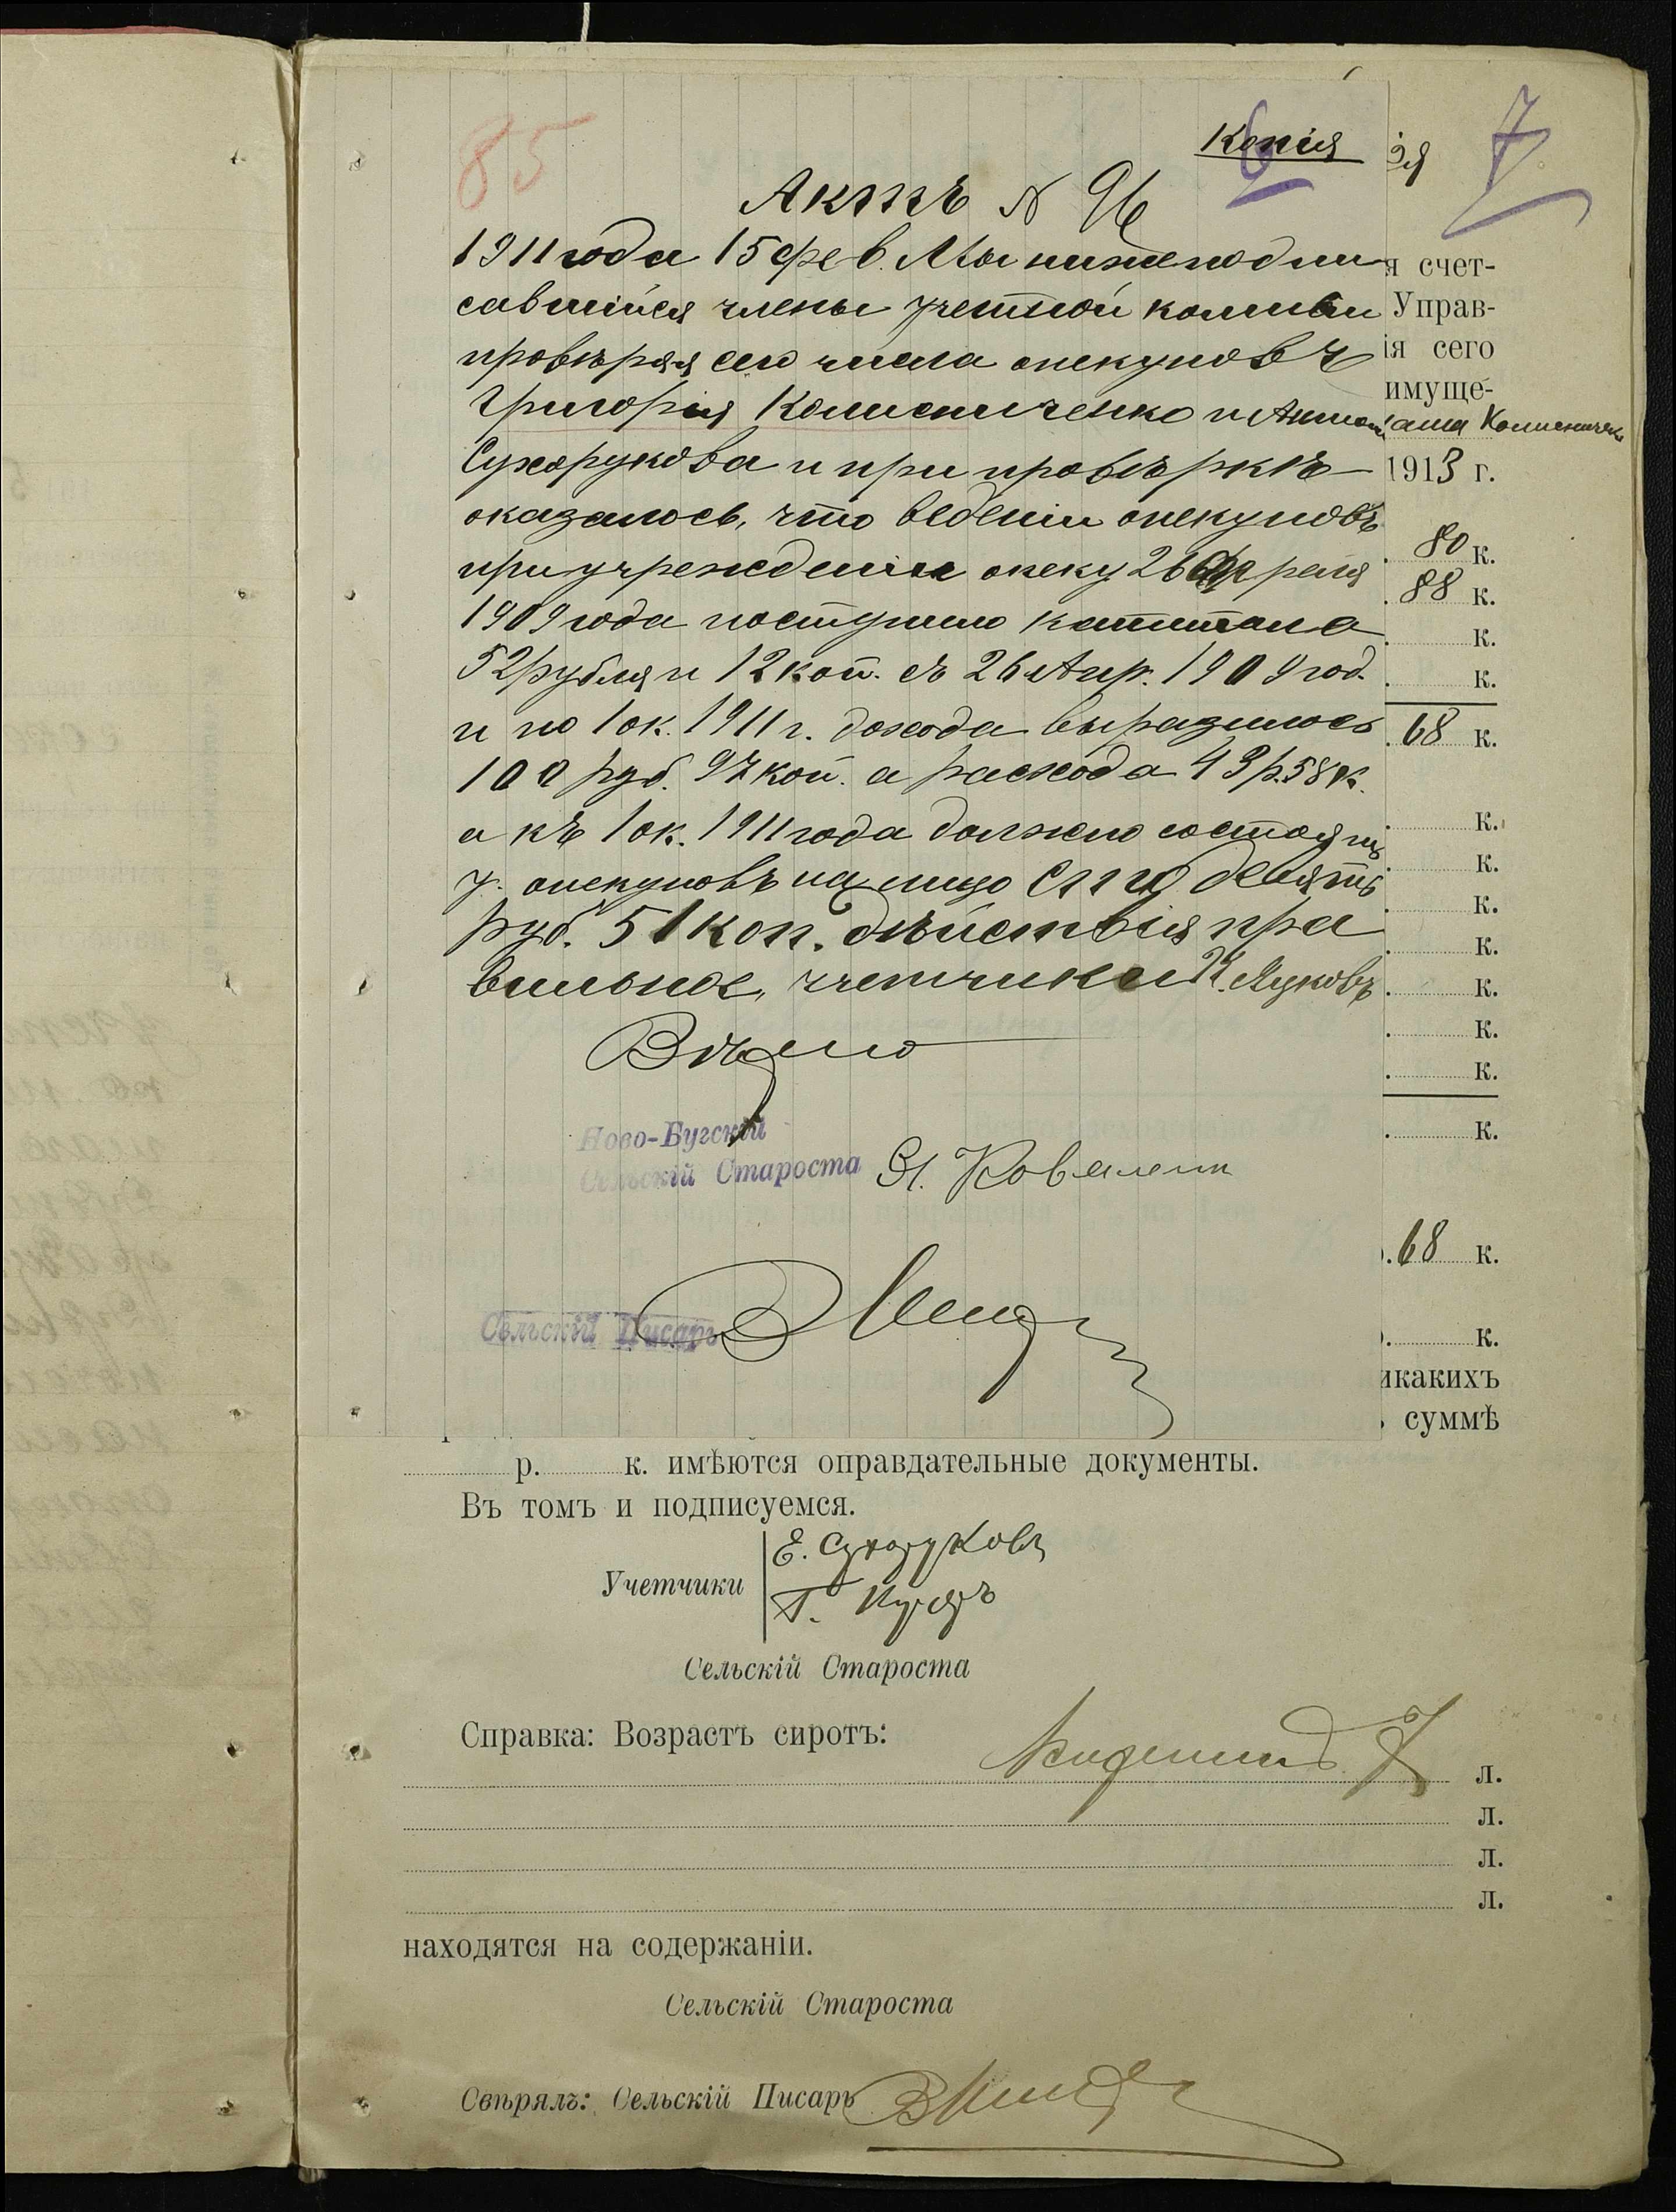 85
Копія
6
Актъ № 96
1911 года 15 фев. Мы нижеподпи
савшійся члены учетной комисіи
провѣряя сего числа опекуновъ
Григорія Колисниченко и Антона
Сухорукова и при провѣркѣ
оказалось, что веденіи опекуновъ
при учрежденіи опеку 26 Апреля
1909 года поступило капитала
52 рубля и 12 коп. съ 26 Апр. 1909 год.
и по 1 ок. 1911 г. дохода выразилось
100 руб. 97 коп. а расхода 43 р. 58 к.
а къ 1 ок. 1911 года должно состоять
у. опекуновъ на лицо Сто девять
руб. 51 коп. дѣйствія пра
вильное, учетчики Луковъ
Вѣрно
Ново-Бугскій
Сельскій Староста Коваленк
Сельскій Писарь
ія 7
я счет-
Управ-
ія сего
имуще-
Колисниченк
1913 г.
80 к.
88 к.
к.
к.
68 к.
к.
к.
к.
к.
к.
к.
к.
к.
68 к.
к.
икакихъ
суммѣ
р. к. имѣются оправдательные документы.
Въ томъ и подписуемся.
Е. Сухоруковъ
Учетчики
Г.
Сельскій Староста
Справка: Возрастъ сиротъ:
л.
л.
л.
л.
находятся на содержаніи.
Сельскій Староста
Свѣрялъ: Сельскій Писарь